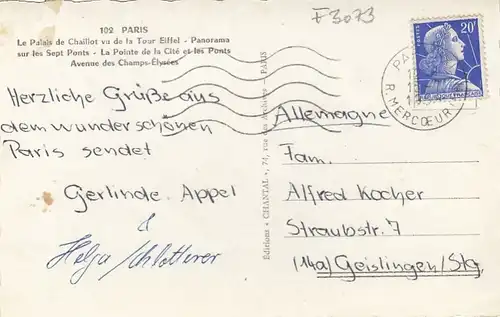 102 PARIS
Le Palais de Chaillot vu de la Tour Eiffel - Panorama
sur les Sept Ponts - La Pointe de la Cité et les Ponts
Avenue des Champs-Élysées
F3073
20F
POSTES
R. MERCŒUR
Herzliche Grüße aus
dem wunderschönen
Paris sendet
Gerlinde Appel
&
Helga Schlotterer
Editions « CHANTAL », 74, rue des Archives - PARIS
Allemagne
Fam.
Alfred Kocher
Straubstr. 7
(14a) Geislingen/Stg.